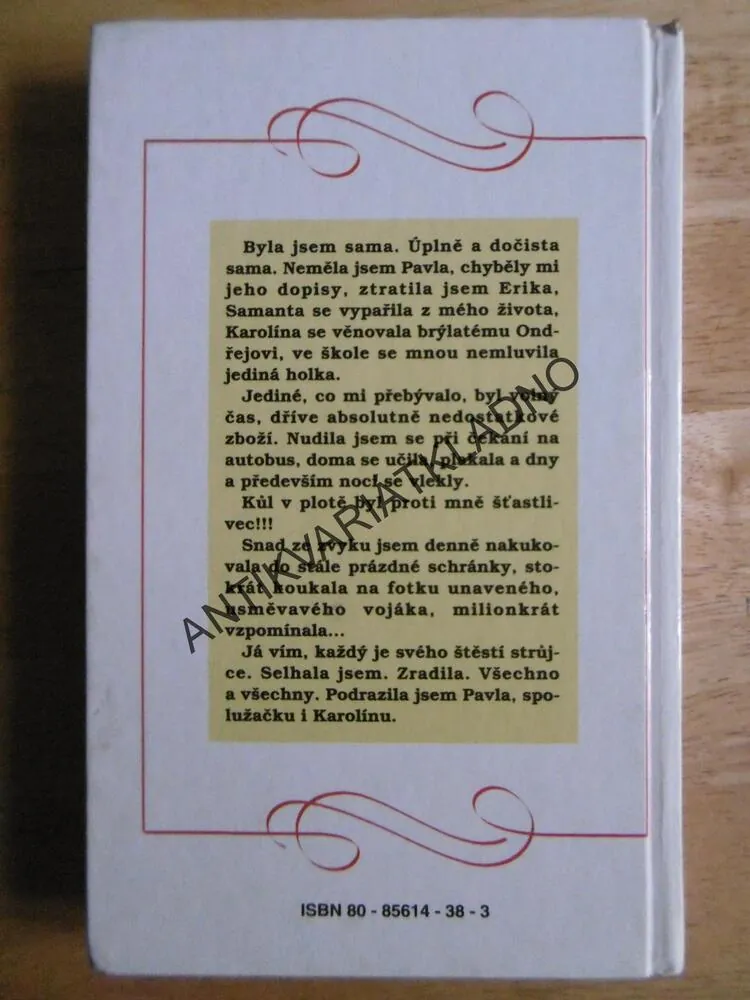 Byla jsem sama. Úplně a dočista
sama. Neměla jsem Pavla, chyběly mi
jeho dopisy, ztratila jsem Erika,
Samanta se vypařila z mého života,
Karolína se věnovala brýlatému Ond-
řejovi, ve škole se mnou nemluvila
jediná holka.
Jediné, co mi přebývalo, byl volný
čas, dříve absolutně nedostatkové
zboží. Nudila jsem se při čekání na
autobus, doma se učila, plakala a dny
a především noci se vlekly.
Kůl v plotě byl proti mně šťastli-
vec!!!
Snad ze zvyku jsem denně nakuko-
vala do stále prázdné schránky, sto-
krát koukala na fotku unaveného,
usměvavého vojáka, milionkrát
vzpomínala...
Já vím, každý je svého štěstí strůj-
ce. Selhala jsem. Zradila. Všechno
a všechny. Podrazila jsem Pavla, spo-
lužačku i Karolínu.
ANTIKVARIATKLADNO
ISBN 80 - 85614 - 38 - 3